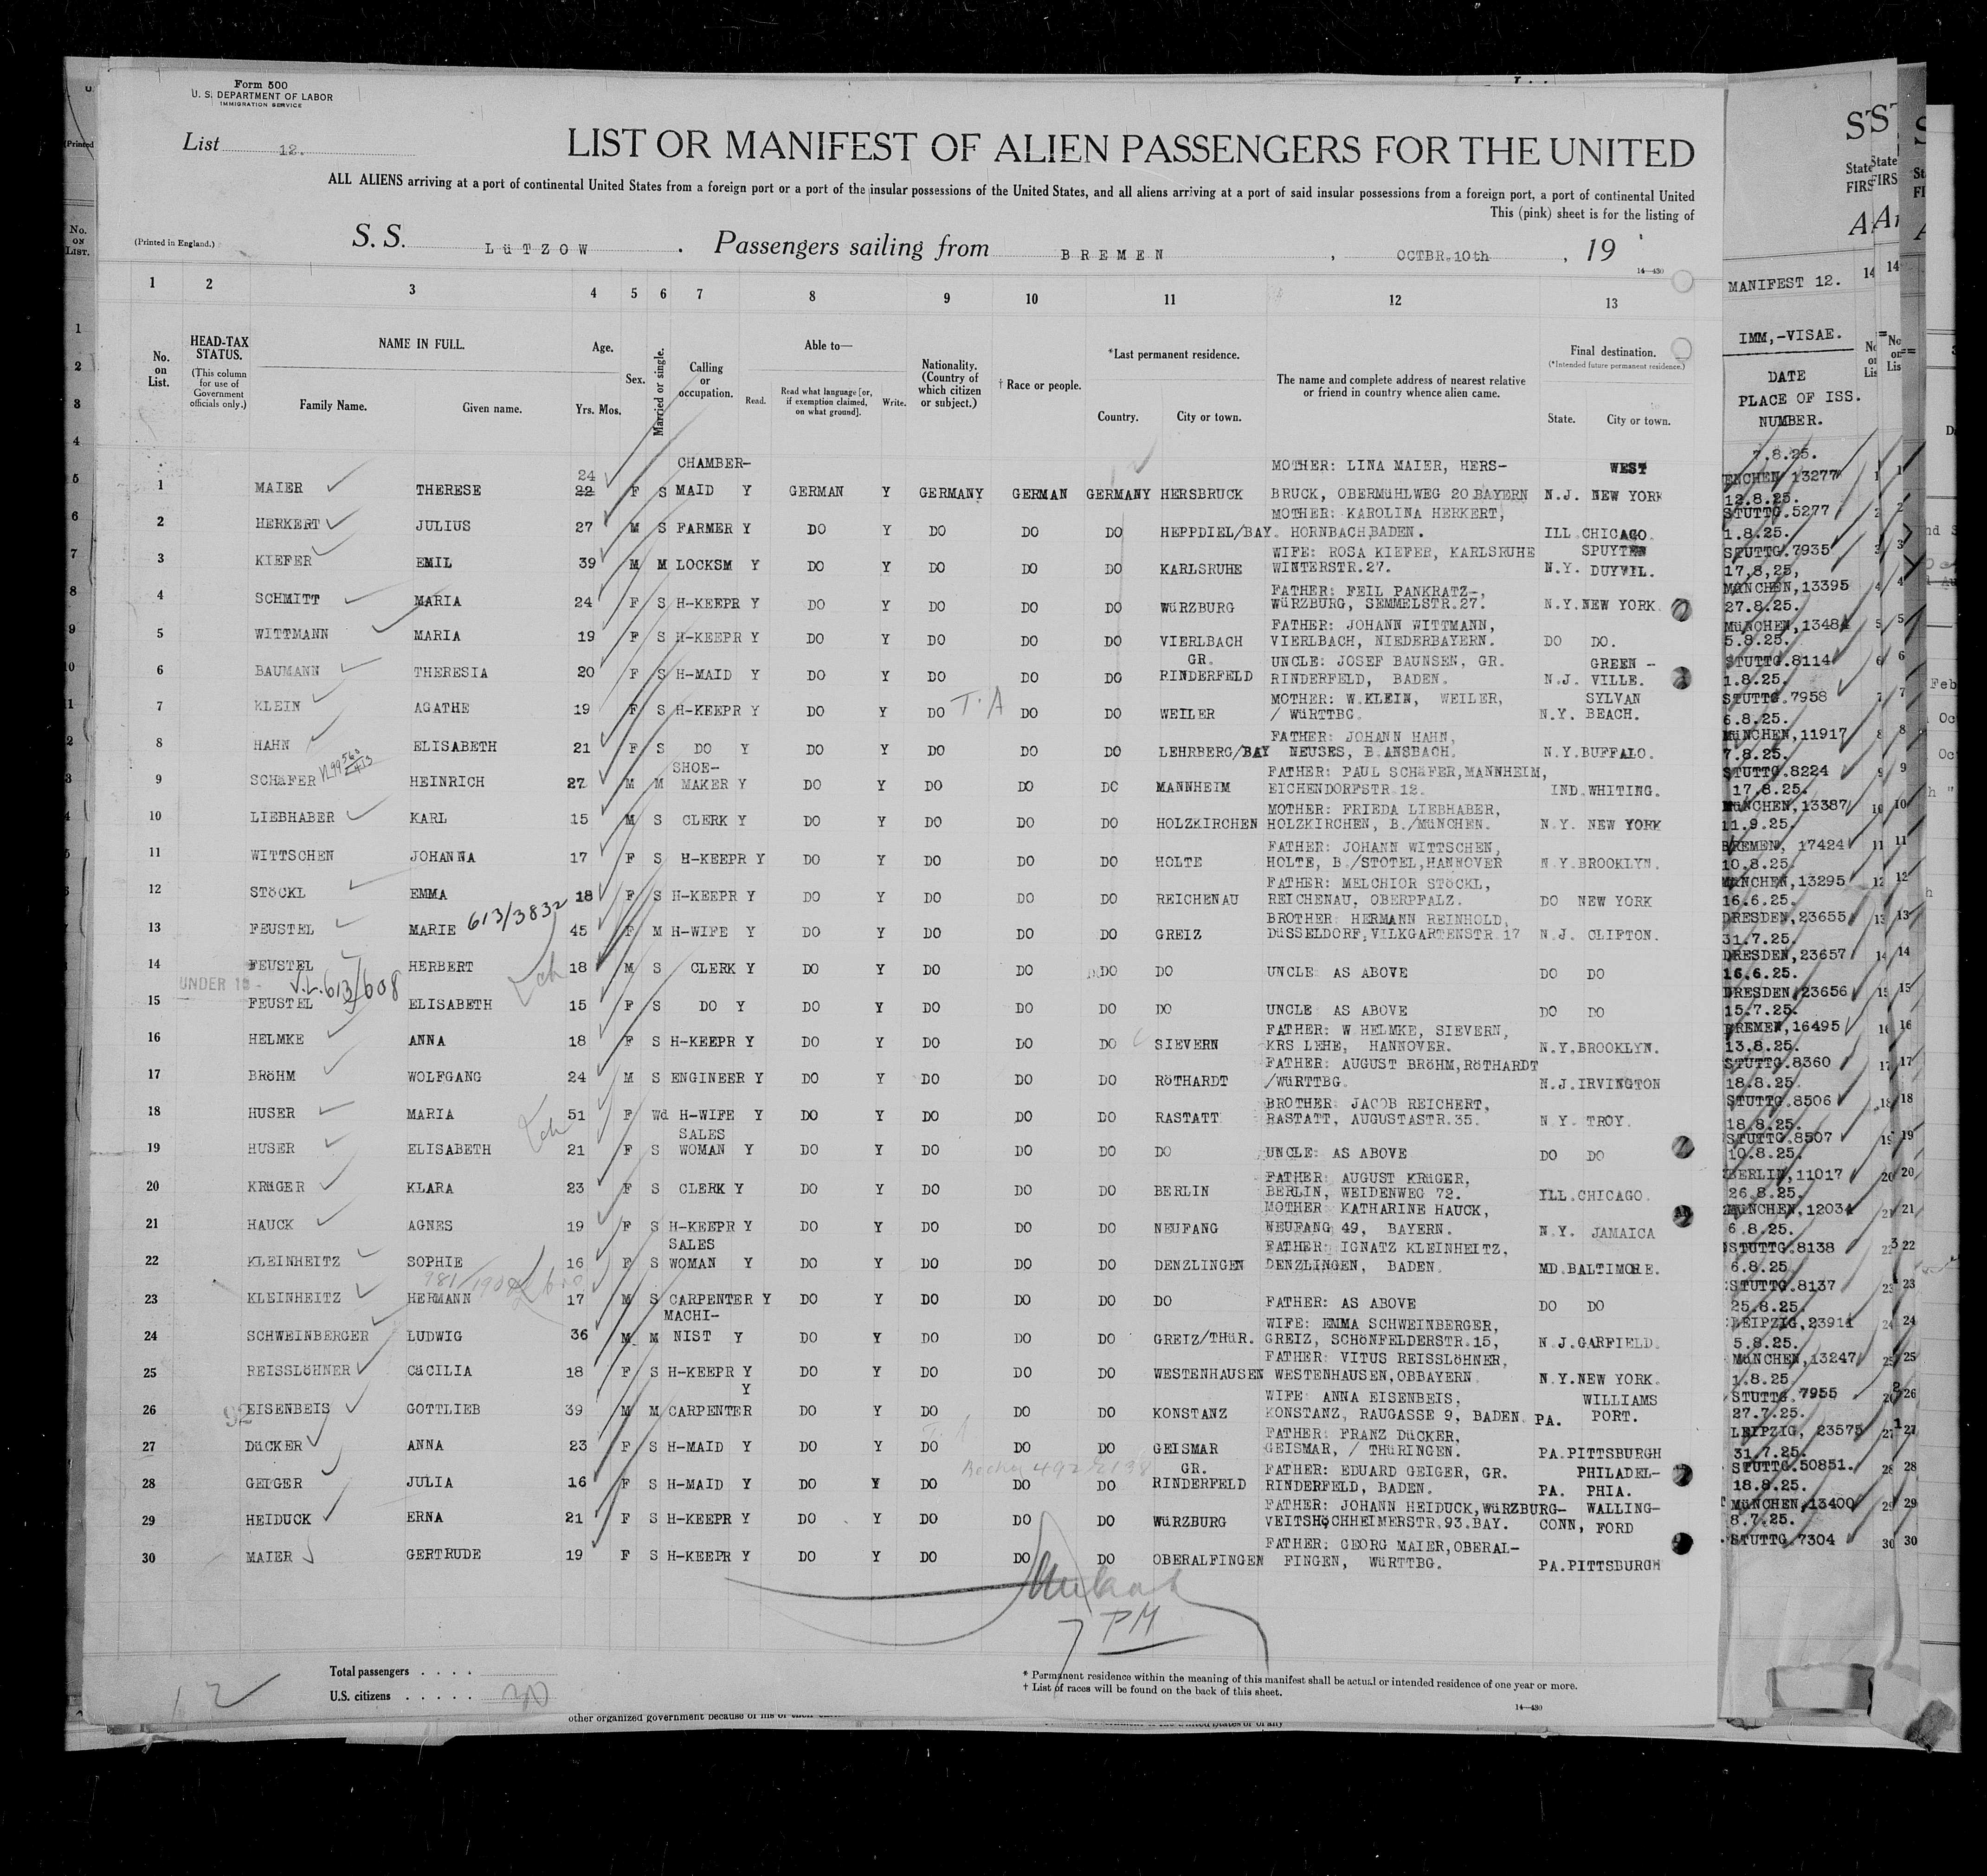 Form 500
U. S. DEPARTMENT OF LABOR
IMMIGRATION SERVICE
List 12.
LIST OR MANIFEST OF ALIEN PASSENGERS FOR THE UNITED
ALL ALIENS arriving at a port of continental United States from a foreign port or a port of the insular possessions of the United States, and all aliens arriving at a port of said insular possessions from a foreign port, a port of continental United
This (pink) sheet is for the listing of
(Printed in England.)
S. S. LüTZOW . Passengers sailing from BREMEN , OCTBR.10th , 19
14—430
1 2 3 4 5 6 7 8 9 10 11 12 13
No. on List.
HEAD-TAX STATUS.
(This column for use of Government officials only.)
NAME IN FULL.
Family Name. Given name.
Age.
Yrs. Mos.
Sex.
Married or single.
Calling or occupation.
Able to—
Read. Read what language [or, if exemption claimed, on what ground]. Write.
Nationality. (Country of which citizen or subject.)
† Race or people.
*Last permanent residence.
Country. City or town.
The name and complete address of nearest relative or friend in country whence alien came.
Final destination.
(*Intended future permanent residence.)
State. City or town.
MANIFEST 12.
IMM,-VISAE.
DATE
PLACE OF ISS.
NUMBER.
24 CHAMBER- MOTHER: LINA MAIER, HERS- WEST 7.8.25.
1 MAIER THERESE 22 F S MAID Y GERMAN Y GERMANY GERMAN GERMANY HERSBRUCK BRUCK, OBERMüHLWEG 20 BAYERN N.J. NEW YORK ENCHEN 13277
MOTHER: KAROLINA HERKERT, 12.8.25.
2 HERKERT JULIUS 27 M S FARMER Y DO Y DO DO DO HEPPDIEL/BAY. HORNBACH,BADEN. ILL.CHICAGO. STUTTG.5277
WIFE: ROSA KIEFER, KARLSRUHE SPUYTEN 1.8.25.
3 KIEFER EMIL 39 M M LOCKSM Y DO Y DO DO DO KARLSRUHE WINTERSTR.27. N.Y. DUYVIL. STUTTG.7935
FATHER: FEIL PANKRATZ-, 17,8,25,
4 SCHMITT MARIA 24 F S H-KEEPR Y DO Y DO DO DO WüRZBURG WüRZBURG, SEMMELSTR.27. N.Y.NEW YORK. MüNCHEN,13395
FATHER: JOHANN WITTMANN, 27.8.25.
5 WITTMANN MARIA 19 F S H-KEEPR Y DO Y DO DO DO VIERLBACH VIERLBACH, NIEDERBAYERN. DO DO. MüNCHEN,13484
GR. UNCLE: JOSEF BAUNSEN, GR. GREEN - 5.8.25.
6 BAUMANN THERESIA 20 F S H-MAID Y DO Y DO DO DO RINDERFELD RINDERFELD, BADEN. N.J. VILLE. STUTTG.8114
MOTHER: W.KLEIN, WEILER, SYLVAN 1.8.25.
7 KLEIN AGATHE 19 F S H-KEEPR Y DO Y DO T.A DO DO WEILER / WüRTTBG. N.Y. BEACH. STUTTG.7958
FATHER: JOHANN HAHN, 6.8.25.
8 HAHN ELISABETH 21 F S DO Y DO Y DO DO DO LEHRBERG/BAY NEUSES, B.ANSBACH. N.Y.BUFFALO. MüNCHEN,11917
SHOE- FATHER: PAUL SCHäFER,MANNHEIM, 7.8.25.
9 SCHäFER HEINRICH 27 M M MAKER Y DO Y DO DO DO MANNHEIM EICHENDORFSTR.12. IND.WHITING. STUTTG.8224
MOTHER: FRIEDA LIEBHABER, 17.8.25.
10 LIEBHABER KARL 15 M S CLERK Y DO Y DO DO DO HOLZKIRCHEN HOLZKIRCHEN, B./MüNCHEN. N.Y. NEW YORK MüNCHEN,13387
FATHER: JOHANN WITTSCHEN, 11.9.25.
11 WITTSCHEN JOHANNA 17 F S H-KEEPR Y DO Y DO DO DO HOLTE HOLTE, B./STOTEL,HANNOVER N.Y.BROOKLYN. BREMEN, 17424
FATHER: MELCHIOR STöCKL, 10.8.25.
12 STöCKL EMMA 18 F S H-KEEPR Y DO Y DO DO DO REICHENAU REICHENAU, OBERPFALZ. DO NEW YORK MüNCHEN,13295
613/3832 BROTHER: HERMANN REINHOLD, 16.6.25.
13 FEUSTEL MARIE 45 F M H-WIFE Y DO Y DO DO DO GREIZ DüSSELDORF,VILKGARTENSTR.17 N.J. CLIFTON. DRESDEN,23655
31.7.25.
14 FEUSTEL HERBERT 18 M S CLERK Y DO Y DO DO DO DO UNCLE: AS ABOVE DO DO DRESDEN,23657
UNDER 18 - V.L.613/608 16.6.25.
15 FEUSTEL ELISABETH 15 F S DO Y DO Y DO DO DO DO UNCLE: AS ABOVE DO DO DRESDEN,23656
FATHER: W.HELMKE, SIEVERN, 15.7.25.
16 HELMKE ANNA 18 F S H-KEEPR Y DO Y DO DO DO SIEVERN KRS LEHE, HANNOVER. N.Y.BROOKLYN. BREMEN,16495
FATHER: AUGUST BRöHM,RöTHARDT 13.8.25.
17 BRöHM WOLFGANG 24 M S ENGINEER Y DO Y DO DO DO RöTHARDT /WüRTTBG. N.J.IRVINGTON STUTTG.8360
BROTHER: JACOB REICHERT, 18.8.25.
18 HUSER MARIA 51 F Wd H-WIFE Y DO Y DO DO DO RASTATT RASTATT, AUGUSTASTR.35. N.Y. TROY. STUTTG.8506
SALES 18.8.25.
19 HUSER ELISABETH 21 F S WOMAN Y DO Y DO DO DO DO UNCLE: AS ABOVE DO DO STUTTG.8507
FATHER: AUGUST KRüGER, 10.8.25.
20 KRüGER KLARA 23 F S CLERK Y DO Y DO DO DO BERLIN BERLIN, WEIDENWEG 72. ILL.CHICAGO. BERLIN,11017
MOTHER: KATHARINE HAUCK, 26.8.25.
21 HAUCK AGNES 19 F S H-KEEPR Y DO Y DO DO DO NEUFANG NEUFANG 49, BAYERN. N.Y. JAMAICA MüNCHEN,12034
SALES FATHER: IGNATZ KLEINHEITZ, 6.8.25.
22 KLEINHEITZ SOPHIE 16 F S WOMAN Y DO Y DO DO DO DENZLINGEN DENZLINGEN, BADEN. MD.BALTIMORE. STUTTG.8138
6.8.25
23 KLEINHEITZ HERMANN 17 M S CARPENTER Y DO Y DO DO DO DO FATHER: AS ABOVE DO DO STUTTG.8137
MACHI- WIFE: EMMA SCHWEINBERGER, 25.8.25.
24 SCHWEINBERGER LUDWIG 36 M M NIST Y DO Y DO DO DO GREIZ/THüR. GREIZ, SCHöNFELDERSTR.15, N.J.GARFIELD. LEIPZIG,23911
FATHER: VITUS REISSLöHNER, 5.8.25.
25 REISSLöHNER CäCILIA 18 F S H-KEEPR Y DO Y DO DO DO WESTENHAUSEN WESTENHAUSEN,OBBAYERN. N.Y.NEW YORK. MüNCHEN,13247
Y WIFE: ANNA EISENBEIS, WILLIAMS 1.8.25
26 EISENBEIS GOTTLIEB 39 M M CARPENTER DO Y DO DO DO KONSTANZ KONSTANZ, RAUGASSE 9, BADEN. PA. PORT. STUTTG.7955
FATHER: FRANZ DüCKER, 27.7.25.
27 DüCKER ANNA 23 F S H-MAID Y DO Y DO DO DO GEISMAR GEISMAR, / THüRINGEN. PA.PITTSBURGH LEIPZIG, 23575
GR. FATHER: EDUARD GEIGER, GR. PHILADEL- 31.7.25.
28 GEIGER JULIA 16 F S H-MAID Y DO Y DO DO DO RINDERFELD RINDERFELD, BADEN. PA. PHIA. STUTTG.50851.
FATHER: JOHANN HEIDUCK,WüRZBURG- WALLING- 18.8.25.
29 HEIDUCK ERNA 21 F S H-KEEPR Y DO Y DO DO DO WüRZBURG VEITSHöCHHEIMERSTR.93.BAY. CONN, FORD MüNCHEN,13400
FATHER: GEORG MAIER,OBERAL- 8.7.25.
30 MAIER GERTRUDE 19 F S H-KEEPR Y DO Y DO DO DO OBERALFINGEN FINGEN, WüRTTBG. PA.PITTSBURGH STUTTG.7304
7 PM
Total passengers . . . .
U.S. citizens . . . . .
* Permanent residence within the meaning of this manifest shall be actual or intended residence of one year or more.
† List of races will be found on the back of this sheet.
14—430
12